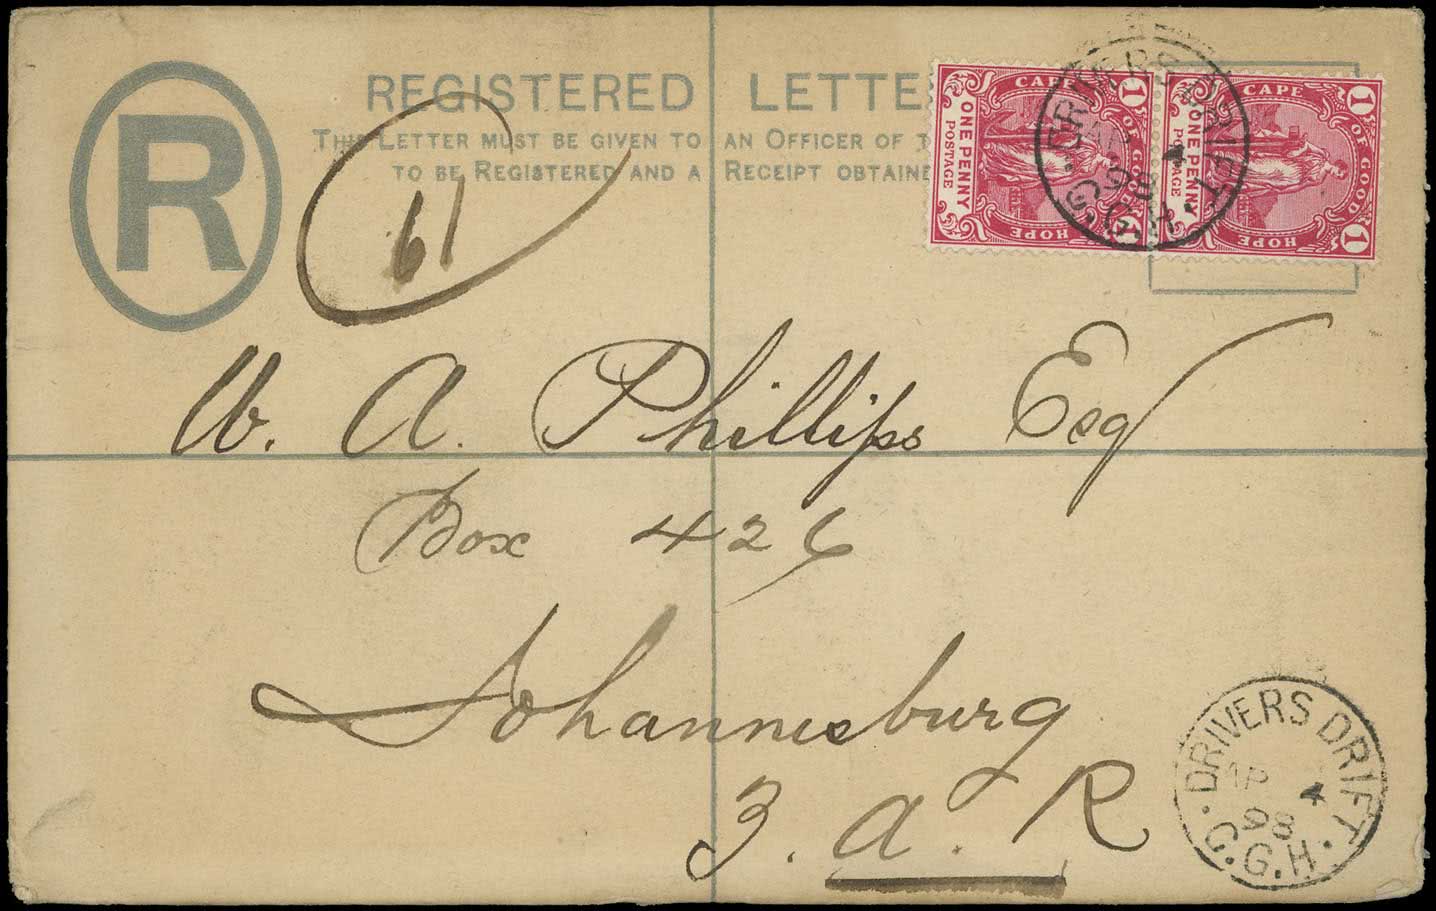 R
REGISTERED LETTE
THIS LETTER MUST BE GIVEN TO AN OFFICER OF T
TO BE REGISTERED AND A RECEIPT OBTAINE
61
CAPE OF GOOD HOPE
ONE PENNY
POSTAGE
1
1
CAPE OF GOOD HOPE
ONE PENNY
POSTAGE
1
1
DRIVERS DRIFT
4
98
C.G.H.
W. A. Phillips Esq
Box 426
Johannesburg
Z. A. R
DRIVERS DRIFT
AP 4
98
C.G.H.